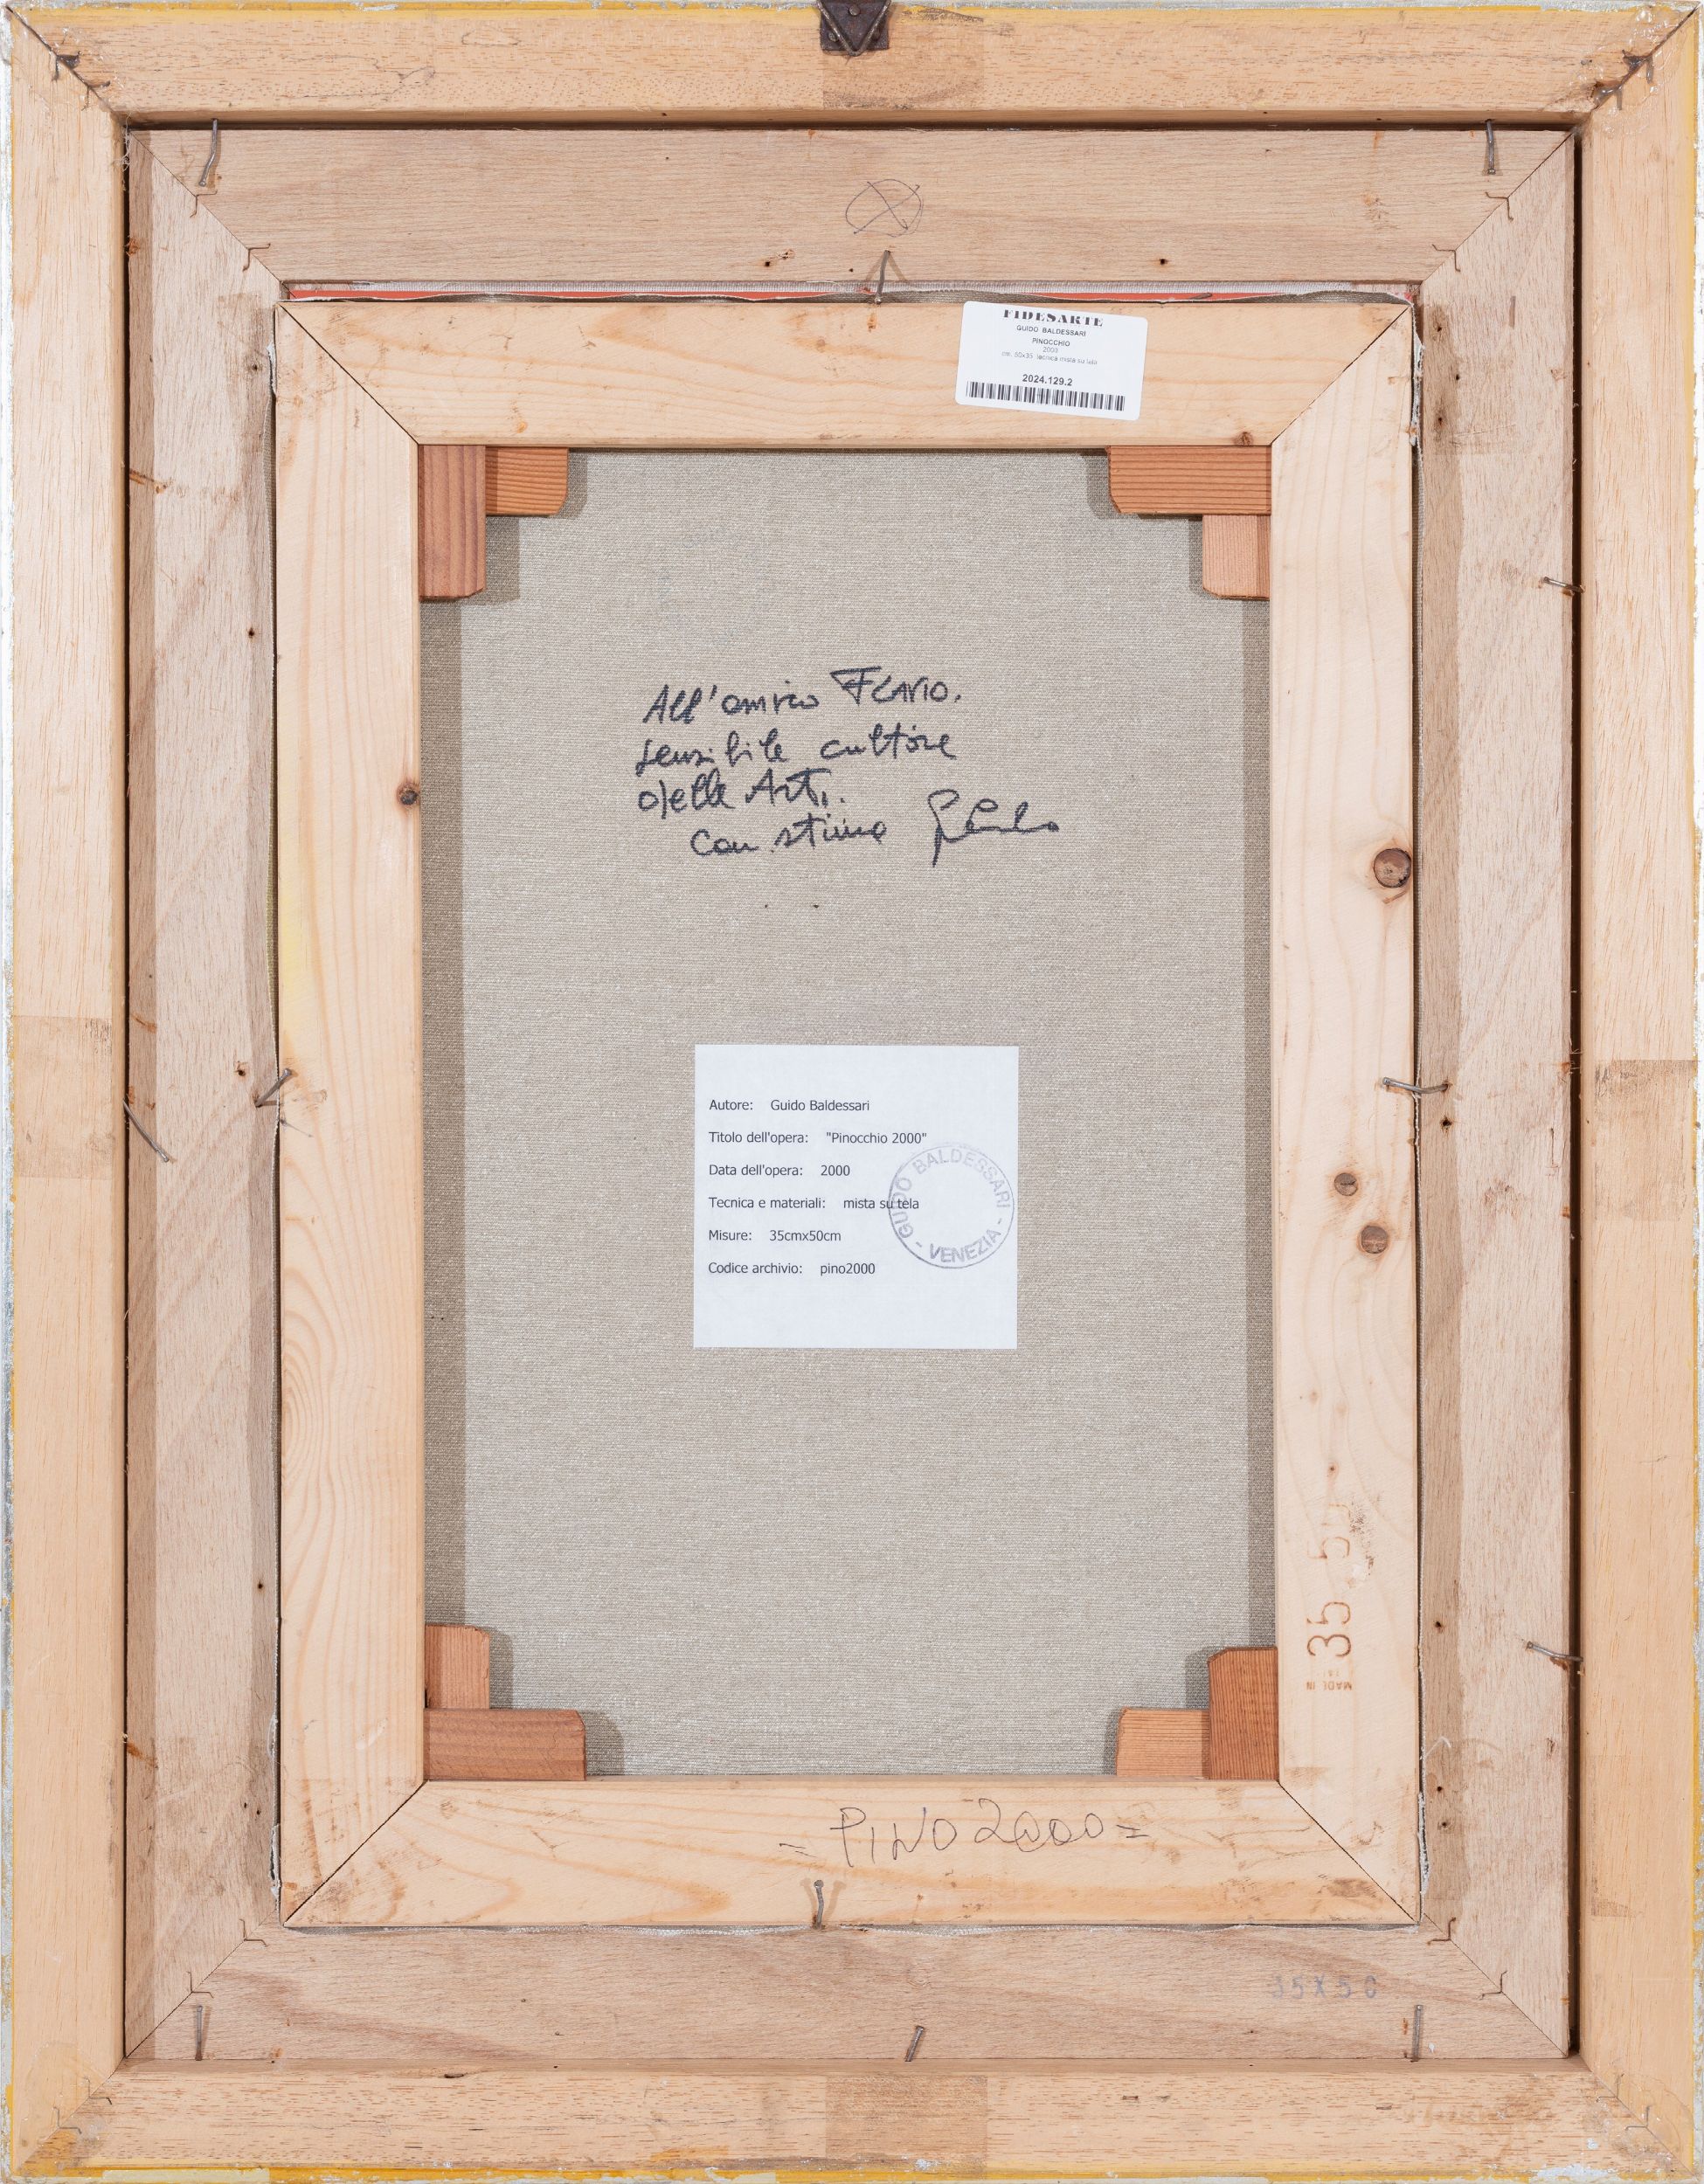 FIDESARTE
GUIDO BALDESSARI
PINOCCHIO
2000
cm. 50x35 tecnica mista su tela
2024.129.2
All'amico Flavio.
sensibile cultore
delle Arti.
Con stima
Autore: Guido Baldessari
Titolo dell'opera: "Pinocchio 2000"
Data dell'opera: 2000
Tecnica e materiali: mista su tela
Misure: 35cmx50cm
Codice archivio: pino2000
GUIDO BALDESSARI
- VENEZIA -
35 5
MADE IN
= PINO 2000 =
35X50